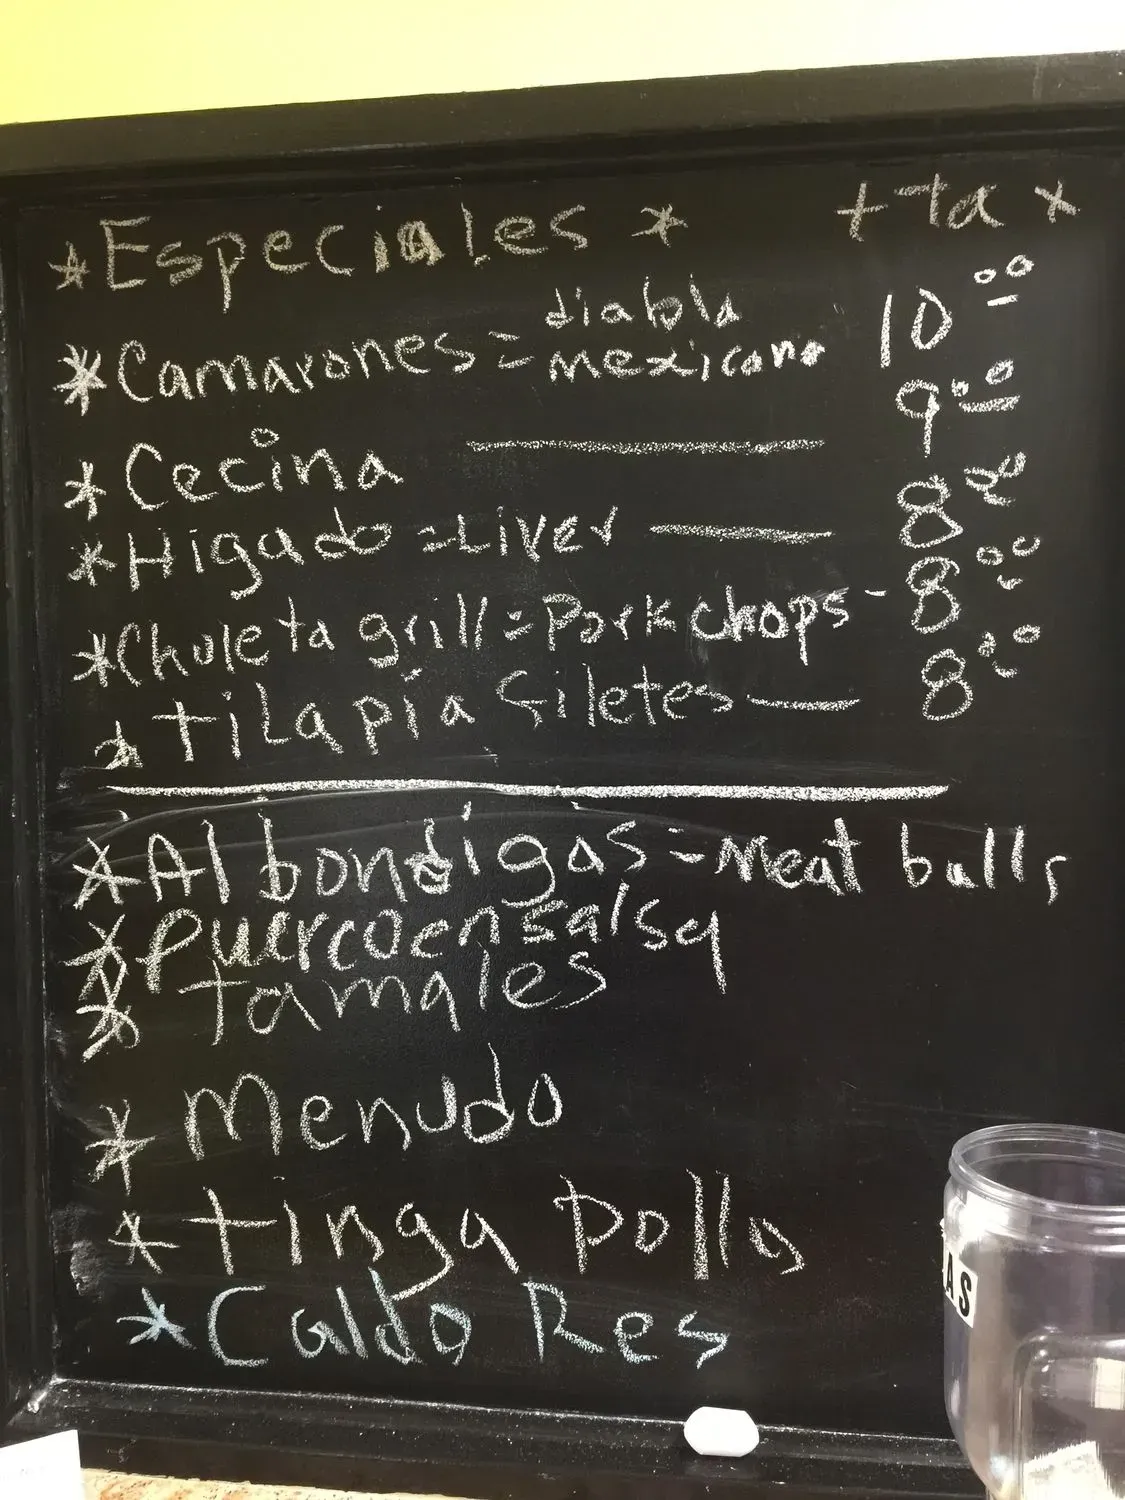 *Especiales* + tax
*Camarones = diabla 10.00
mexicano
*Cecina 9.00
*Higado = Liver 8.00
*Chuleta grill = Pork chops - 8.00
*tilapia filetes 8.00
*Albondigas = Meat balls
*puerco en salsa
*tamales
*Menudo
*tinga pollo
*Caldo Res
AS